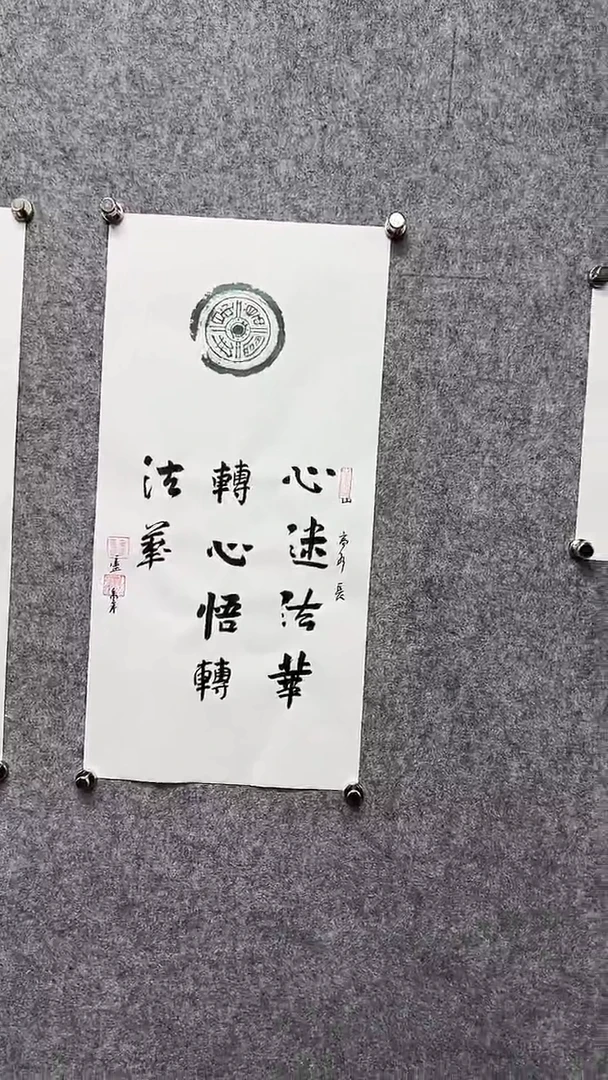 心迷法華
轉心悟轉
法華